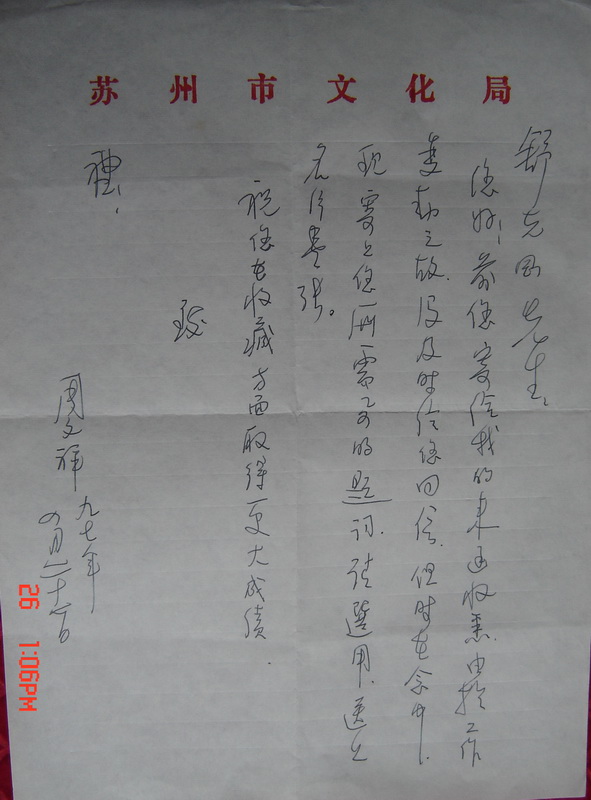 苏州市文化局
舒克勇先生：
您好！前您寄给我的来函收悉，由于工作
变动之故，没及时给您回信，但时在念中。
现寄上您所需要的题词，请选用，送上
名片壹张。
祝您在收藏方面取得更大成绩。
致
礼！
周文祥
九七年
四月二十六日
26 1:06PM